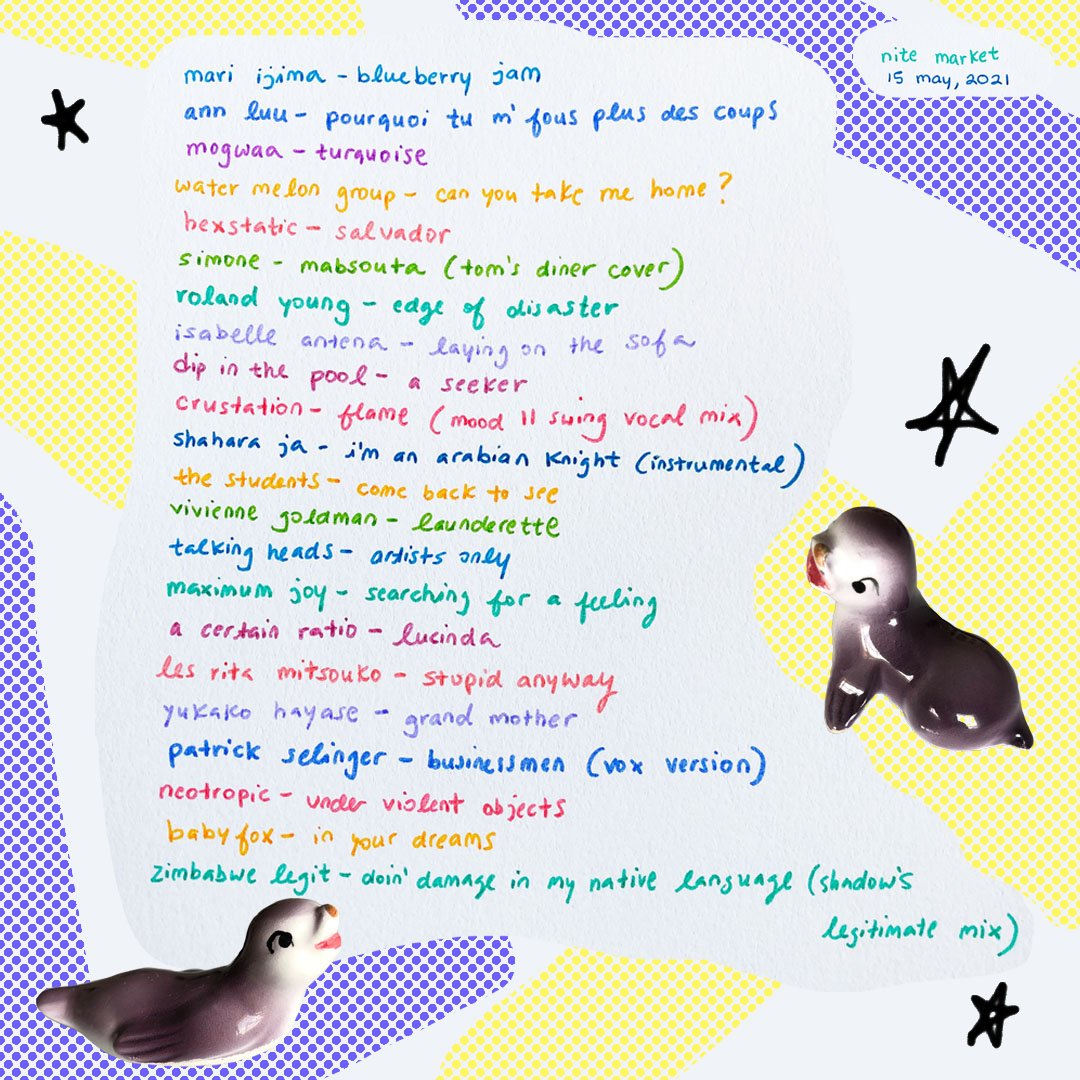 nite market
15 may, 2021
mari ijima - blueberry jam
ann luu - pourquoi tu m'fous plus des coups
mogwaa - turquoise
water melon group - can you take me home?
hexstatic - salvador
simone - mabsouta (tom's diner cover)
roland young - edge of disaster
isabelle antena - laying on the sofa
dip in the pool - a seeker
crustation - flame (mood II swing vocal mix)
shahara ja - i'm an arabian knight (instrumental)
the students - come back to see
vivienne goldman - launderette
talking heads - artists only
maximum joy - searching for a feeling
a certain ratio - lucinda
les rita mitsouko - stupid anyway
yukako hayase - grand mother
patrick selinger - businessmen (vox version)
neotropic - under violent objects
baby fox - in your dreams
zimbabwe legit - doin' damage in my native language (shadow's
legitimate mix)